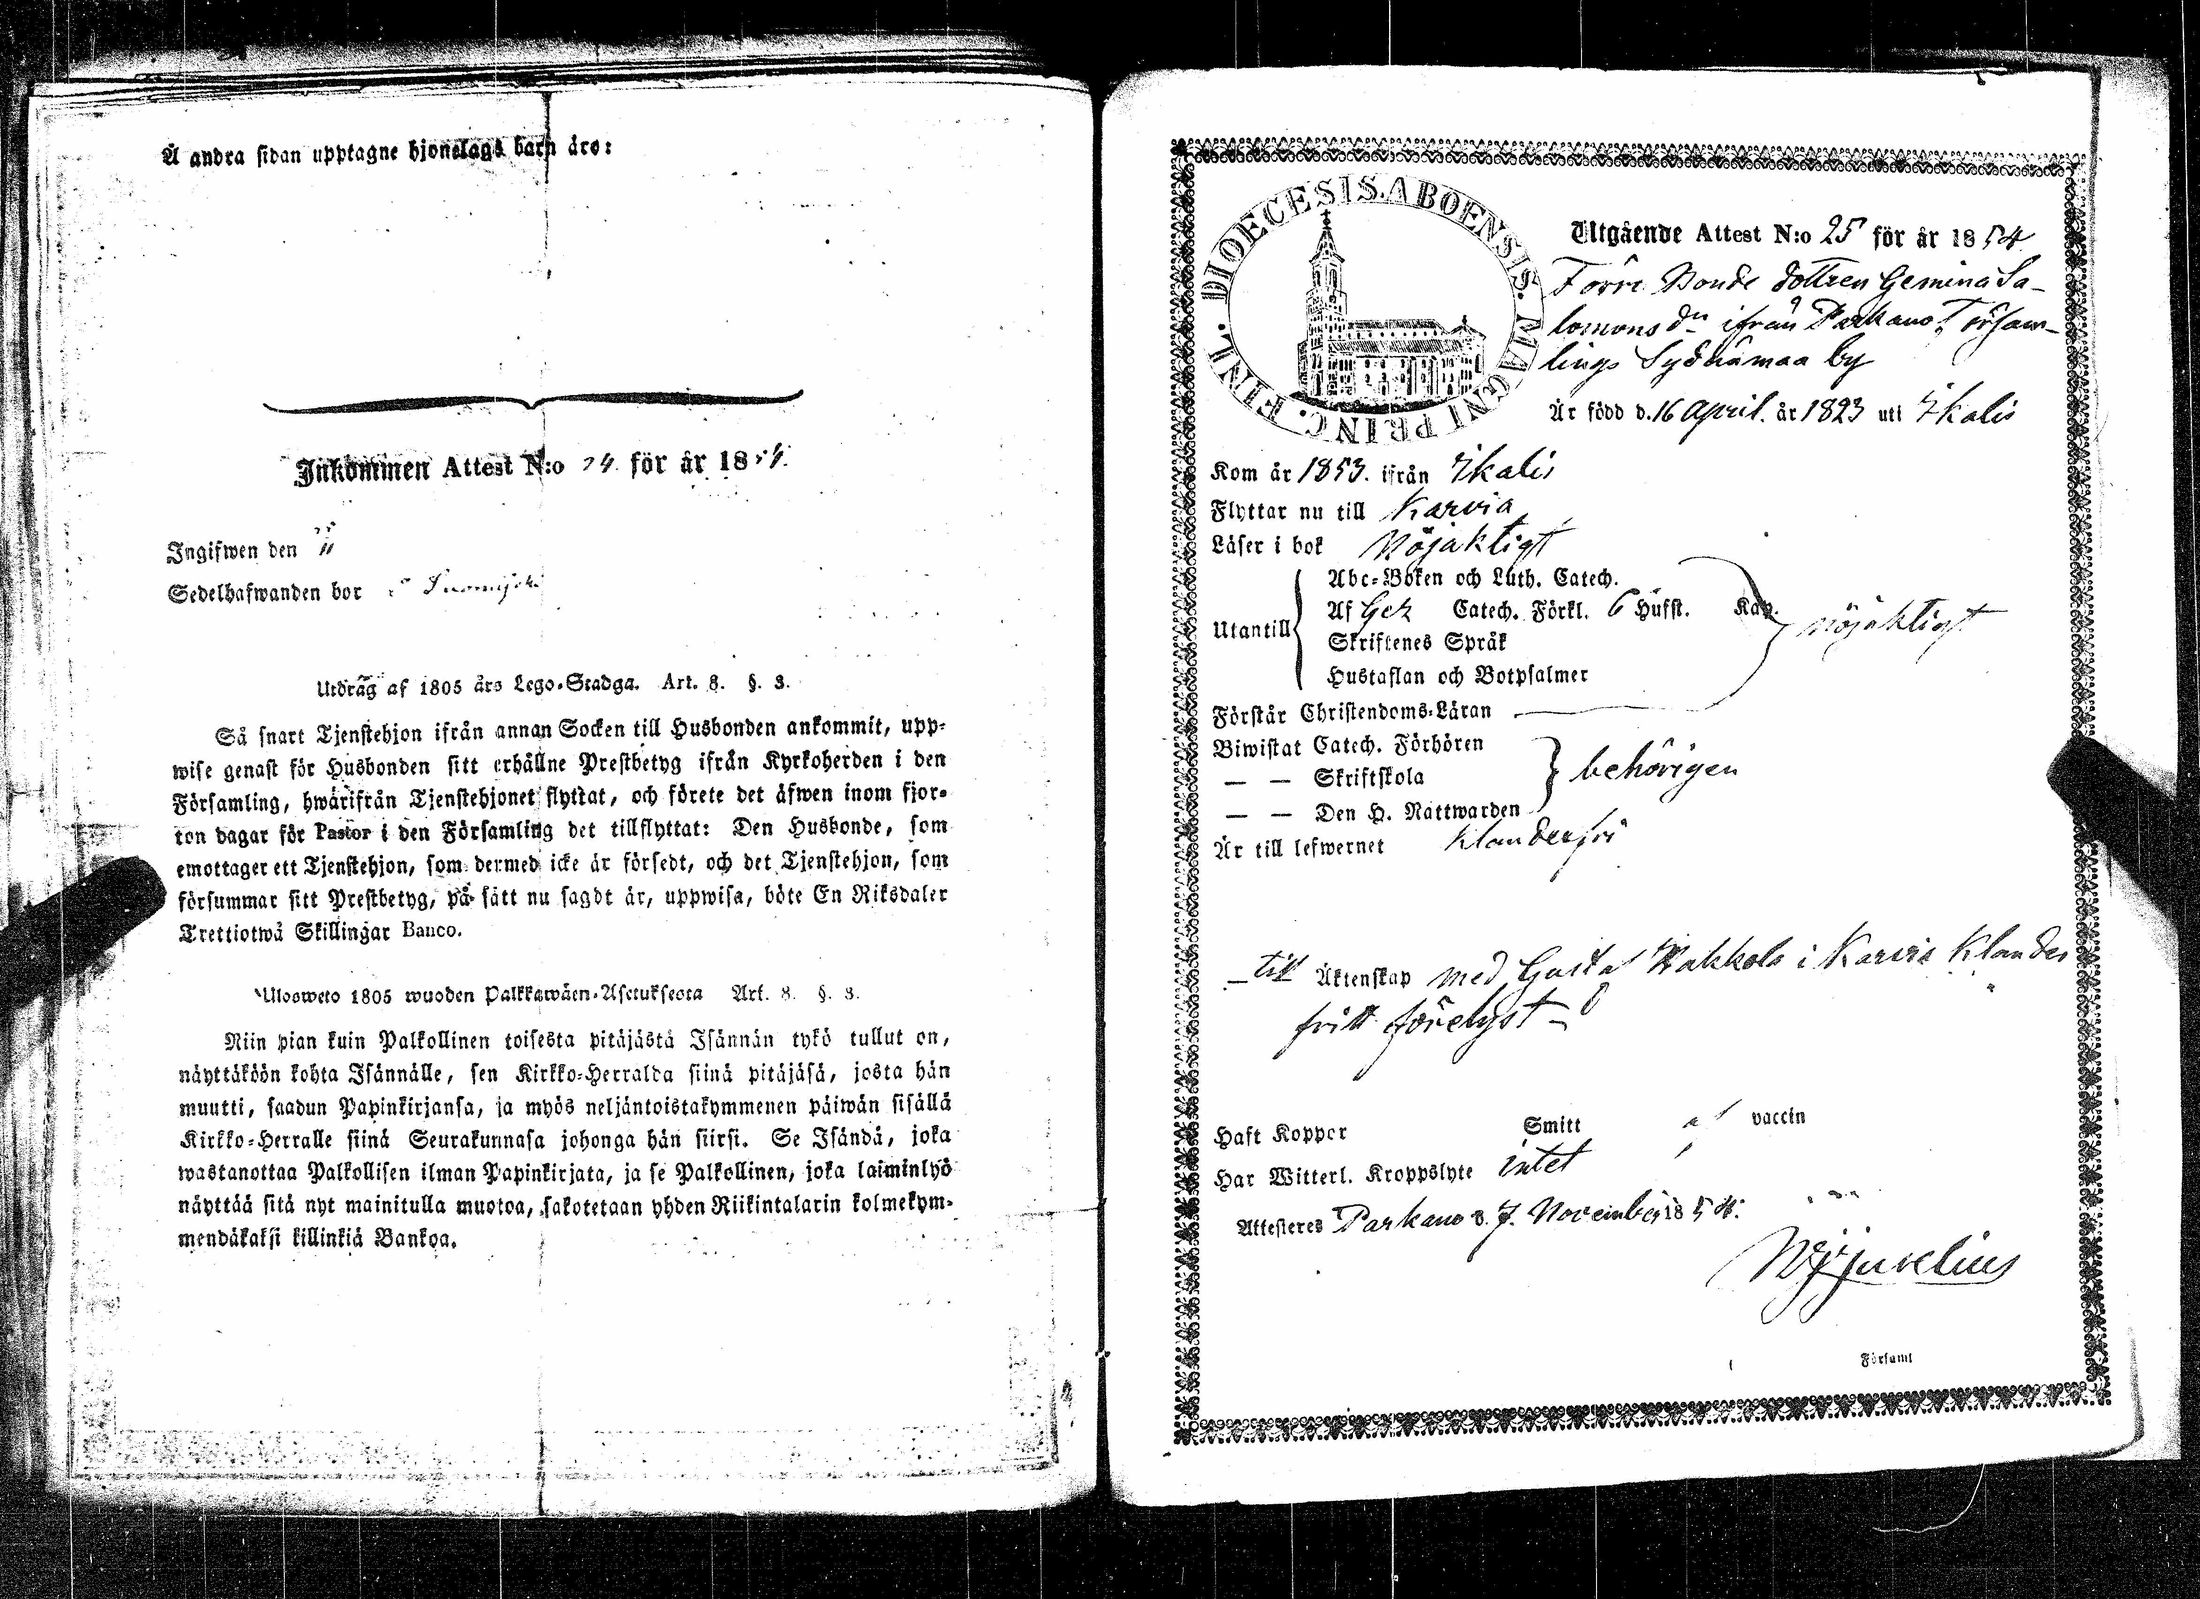 Å andra sidan upptagne hjonelags barn äro:
Inkommen Attest N:o 24. för år 1854.
Ingifwen den
Sedelhafwanden bor
Utdrag af 1805 års Lego-Stadga. Art. 8. §. 3.
Så snart Tjenstehjon ifrån annan Socken till Husbonden ankommit, upp-
wise genast för Husbonden sitt erhållne Prestbetyg ifrån Kyrkoherden i den
Församling, hwarifrån Tjenstehjonet flyttat, och förete det äfwen inom fjor-
ton dagar för Pastor i den Församling det tillflyttat: Den Husbonde, som
emottager ett Tjenstehjon, som dermed icke är försedt, och det Tjenstehjon, som
försummar sitt Prestbetyg, på sätt nu sagdt är, uppwisa, böte En Riksdaler
Trettiotwå Skillingar Banco.
Ulosweto 1805 wuoden Palkkawäen-Asetuksesta Art. 8. §. 3.
Niin pian kuin Palkollinen toisesta pitäjästä Isännän tykö tullut on,
näyttäköön kohta Isännälle, sen Kirkko-Herralda siinä pitäjäsä, josta hän
muutti, saadun Papinkirjansa, ja myös neljäntoistakymmenen päiwän sisällä
Kirkko-Herralle siinä Seurakunnasa johonga hän siirsi. Se Isändä, joka
wastanottaa Palkollisen ilman Papinkirjata, ja se Palkollinen, joka laiminlyö
näyttää sitä nyt mainitulla muotoa, sakotetaan yhden Riikintalarin kolmekym-
mendäkaksi killinkiä Bankoa.
DIOECESIS. ABOENSIS. MAGNI PRINC. FINL.
Utgående Attest N:o 25 för år 1854
Förre Bonde dottren Gemina Sa-
lomons dr ifrån Parkano Församlings
lings Sydänmaa by
Är född d. 16 April. år 1823 uti Ikalis
Kom år 1853. ifrån Ikalis
Flyttar nu till Karvia
Läser i bok Nöjaktigt
Abc-Boken och Luth. Catech.
Af Gez Catech. Förkl. 6 Hufst. Kap.
Utantill
nöjaktigt
Skriftenes Språk
Hustaflan och Botpsalmer
Förstår Christendoms-Läran
Biwistat Catech. Förhören
— — Skriftskola
behörigen
— — Den H. Nattwarden
Är till lefwernet Klanderfri
— till Äktenskap med Gustaf Wakkola i Karvia Klander
fritt förelyst —
Haft Koppor Smitt af vaccin
Har Witterl. Kroppslyte intet
Attesteras Parkano d. 7. November 1854.
WJjuvelius
Församl